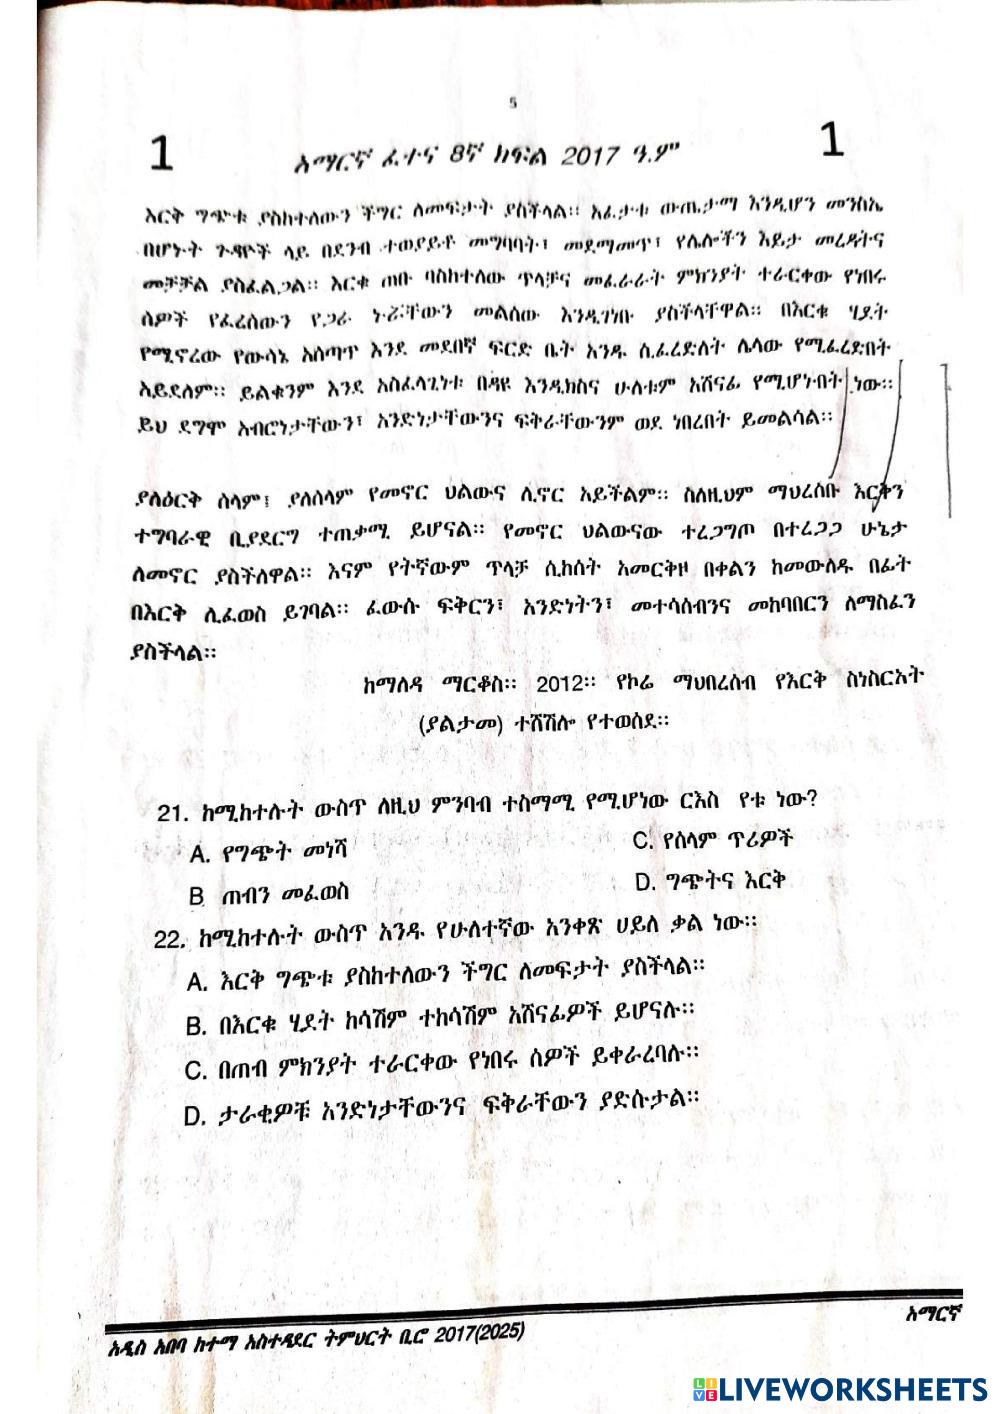 5
1 አማርኛ ፈተና 8ኛ ክፍል 2017 ዓ.ም 1
እርቅ ግጭቱ ያስከተለውን ችግር ለመፍታት ያስችላል፡፡ አፈታቱ ውጤታማ እንዲሆን መንስኤ
በሆኑት ጉዳዮች ላይ በደንብ ተወያይቶ መግባባት፣ መደማመጥ፣ የሌሎችን እይታ መረዳትና
መቻቻል ያስፈልጋል፡፡ እርቁ ጠቡ ባስከተለው ጥላቻና መፈራራት ምክንያት ተራርቀው የነበሩ
ሰዎች የፈረሰውን የጋራ ኑሯቸውን መልሰው እንዲገነቡ ያስችላቸዋል፡፡ በእርቁ ሂደት
የሚኖረው የውሳኔ አሰጣጥ እንደ መደበኛ ፍርድ ቤት አንዱ ሲፈረድለት ሌላው የሚፈረድበት
አይደለም፡፡ ይልቁንም እንደ አስፈላጊነቱ በዳዩ እንዲክስና ሁለቱም አሸናፊ የሚሆኑበት ነው፡፡
ይህ ደግሞ አብሮነታቸውን፣ አንድነታቸውንና ፍቅራቸውንም ወደ ነበረበት ይመልሳል፡፡
ያለዕርቅ ሰላም፤ ያለሰላም የመኖር ህልውና ሊኖር አይችልም፡፡ ስለዚህም ማህረሰቡ እርቅን
ተግባራዊ ቢያደርግ ተጠቃሚ ይሆናል፡፡ የመኖር ህልውናው ተረጋግጦ በተረጋጋ ሁኔታ
ለመኖር ያስችለዋል፡፡ እናም የትኛውም ጥላቻ ሲከሰት አመርቅዞ በቀልን ከመውለዱ በፊት
በእርቅ ሊፈወስ ይገባል፡፡ ፈውሱ ፍቅርን፣ አንድነትን፣ መተሳሰብንና መከባበርን ለማስፈን
ያስችላል፡፡
ከማለዳ ማርቆስ፡፡ 2012፡፡ የኮሬ ማህበረሰብ የእርቅ ስነስርአት
(ያልታመ) ተሸሽሎ የተወሰደ፡፡
21. ከሚከተሉት ውስጥ ለዚህ ምንባብ ተስማሚ የሚሆነው ርእስ የቱ ነው?
A. የግጭት መነሻ C. የሰላም ጥሪዎች
B ጠብን መፈወስ D. ግጭትና እርቅ
22. ከሚከተሉት ውስጥ አንዱ የሁለተኛው አንቀጽ ሀይለ ቃል ነው፡፡
A. እርቅ ግጭቱ ያስከተለውን ችግር ለመፍታት ያስችላል፡፡
B. በእርቁ ሂደት ከሳሽም ተከሳሽም አሸናፊዎች ይሆናሉ፡፡
C. በጠብ ምክንያት ተራርቀው የነበሩ ሰዎች ይቀራረባሉ፡፡
D. ታራቂዎቹ አንድነታቸውንና ፍቅራቸውን ያድሱታል፡፡
አማርኛ
አዲስ አበባ ከተማ አስተዳደር ትምህርት ቢሮ 2017(2025)
LIVEWORKSHEETS